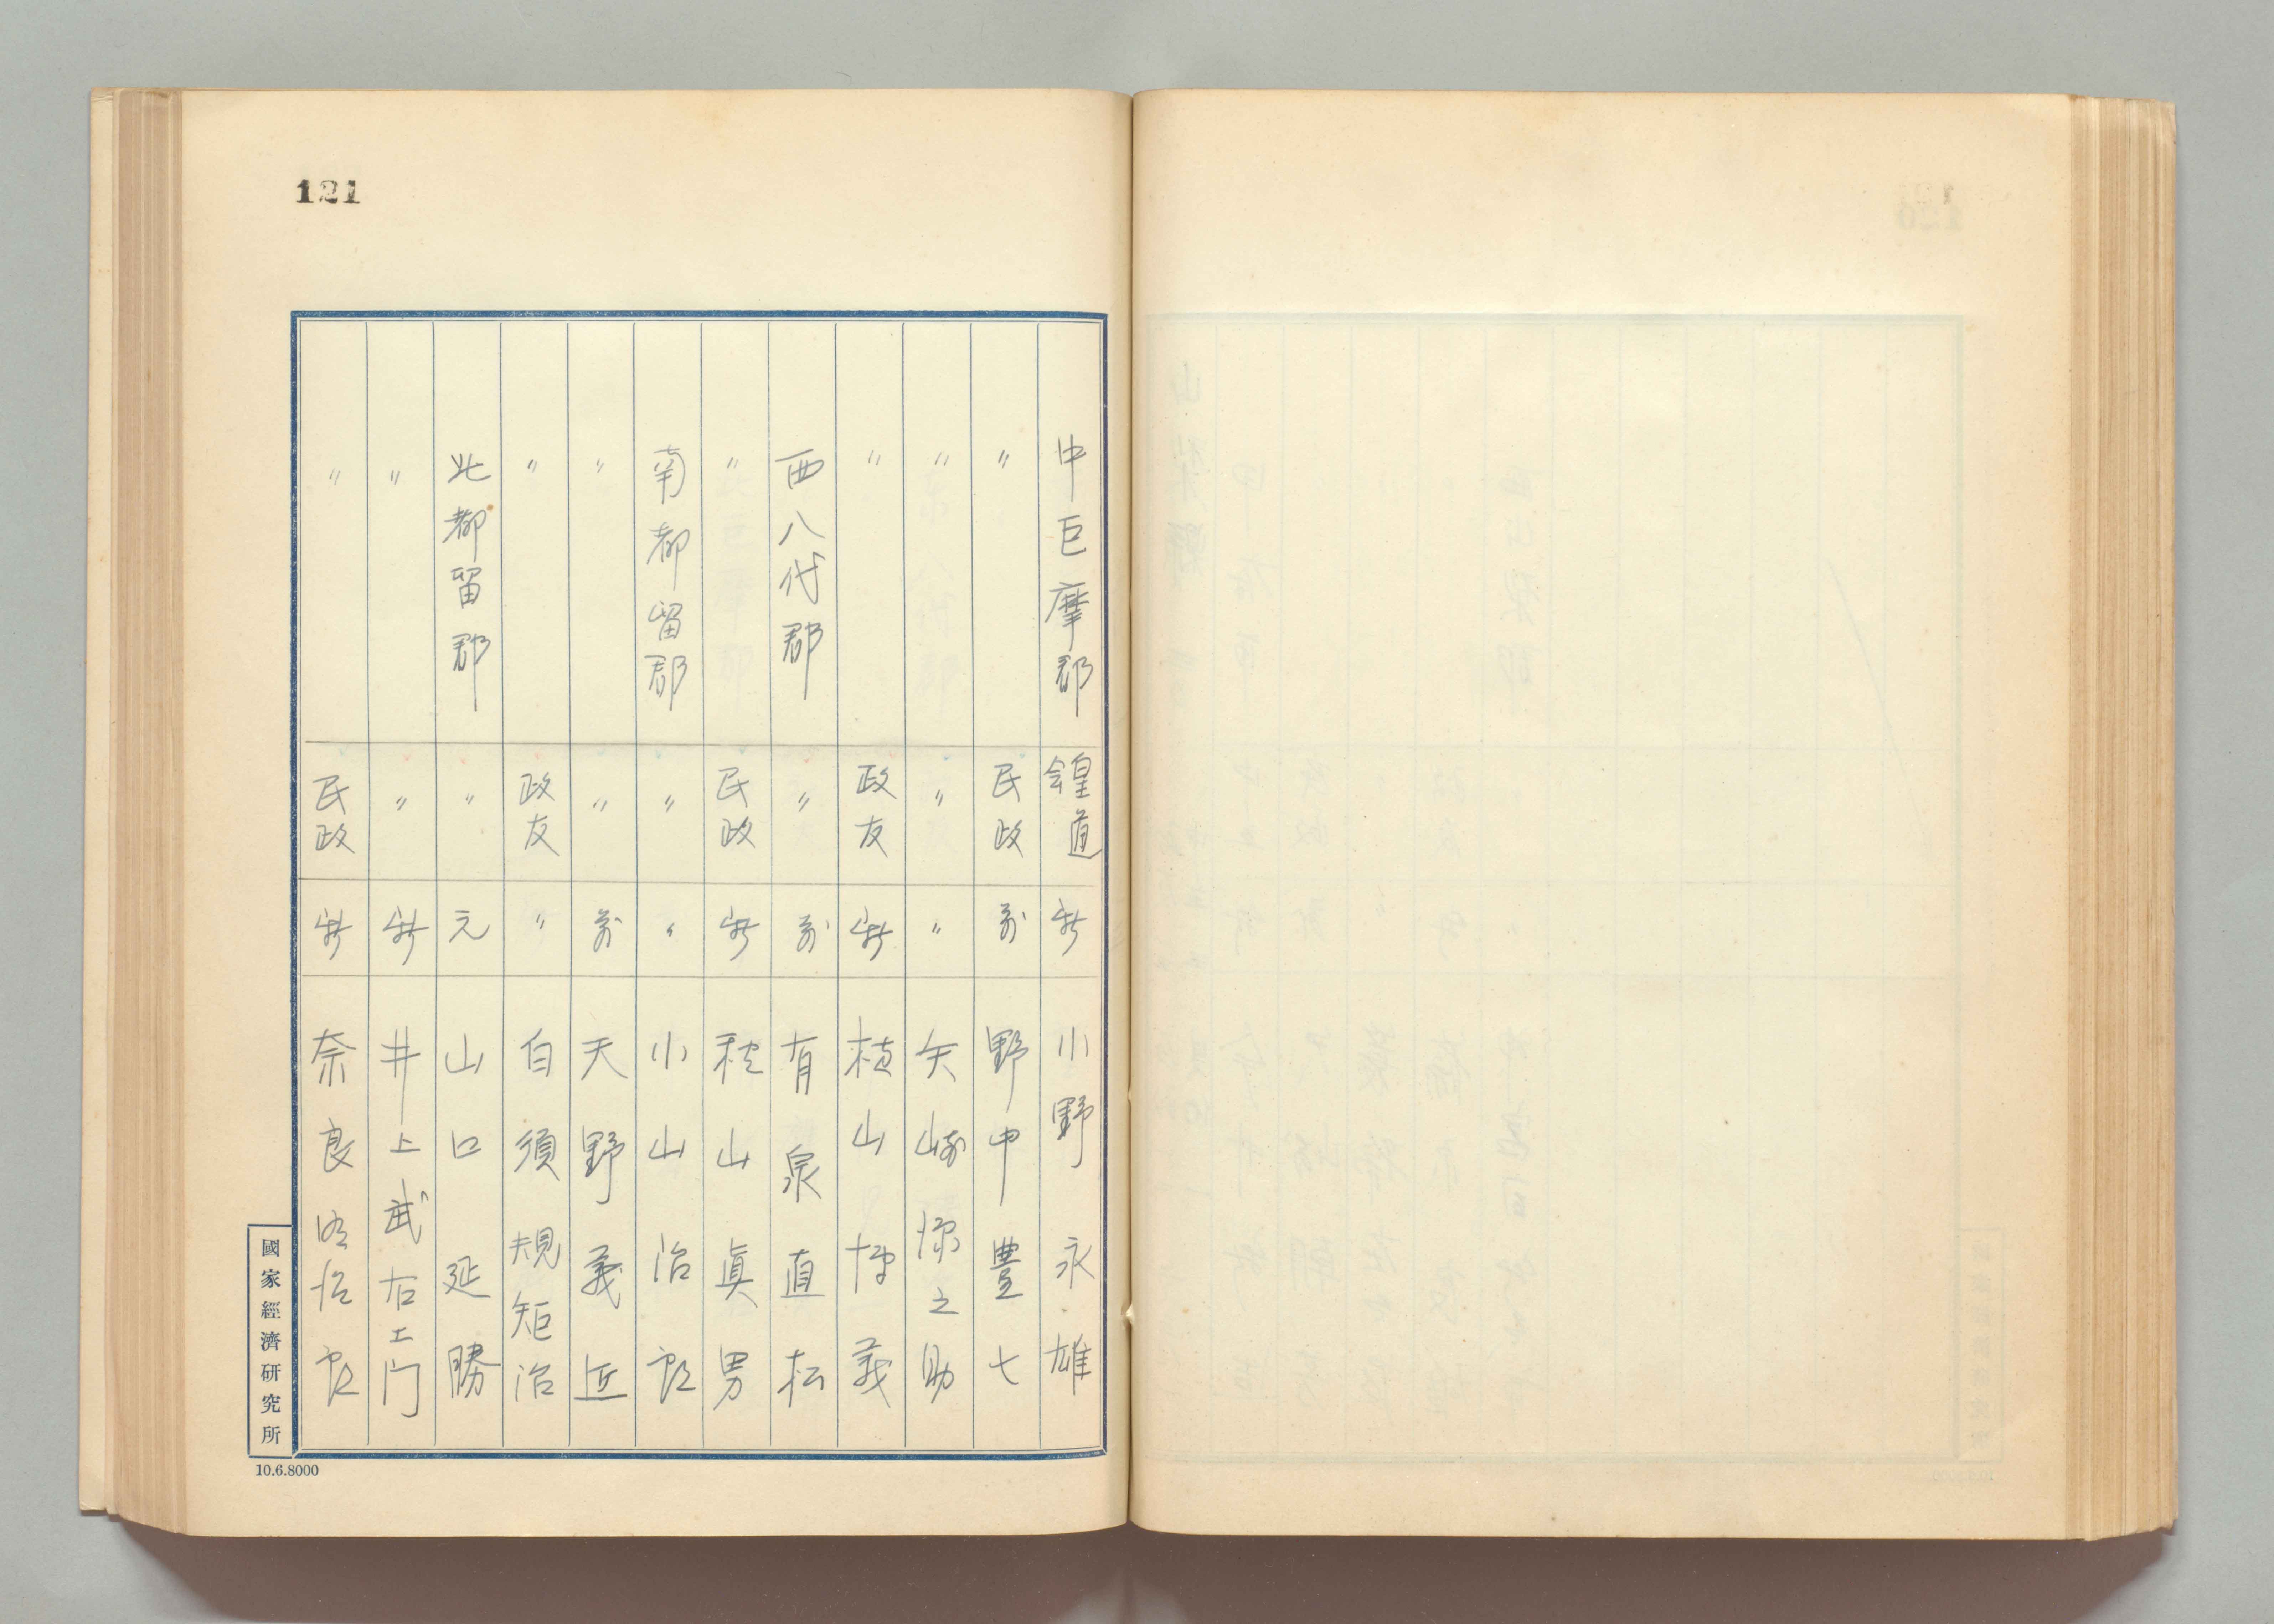 121
中巨摩郡 皇道会 新 小野永雄
〃 民政 前 野中豊七
〃 〃 〃 矢崎源之助
〃 政友 新 植山博義
西八代郡 〃 前 有泉直松
〃 民政 新 秋山眞男
南都留郡 〃 〃 小山治郎
〃 〃 前 天野義近
〃 政友 〃 白須規矩治
北都留郡 〃 元 山口延勝
〃 〃 新 井上武右エ門
〃 民政 新 奈良
國家經濟研究所
10.6.8000